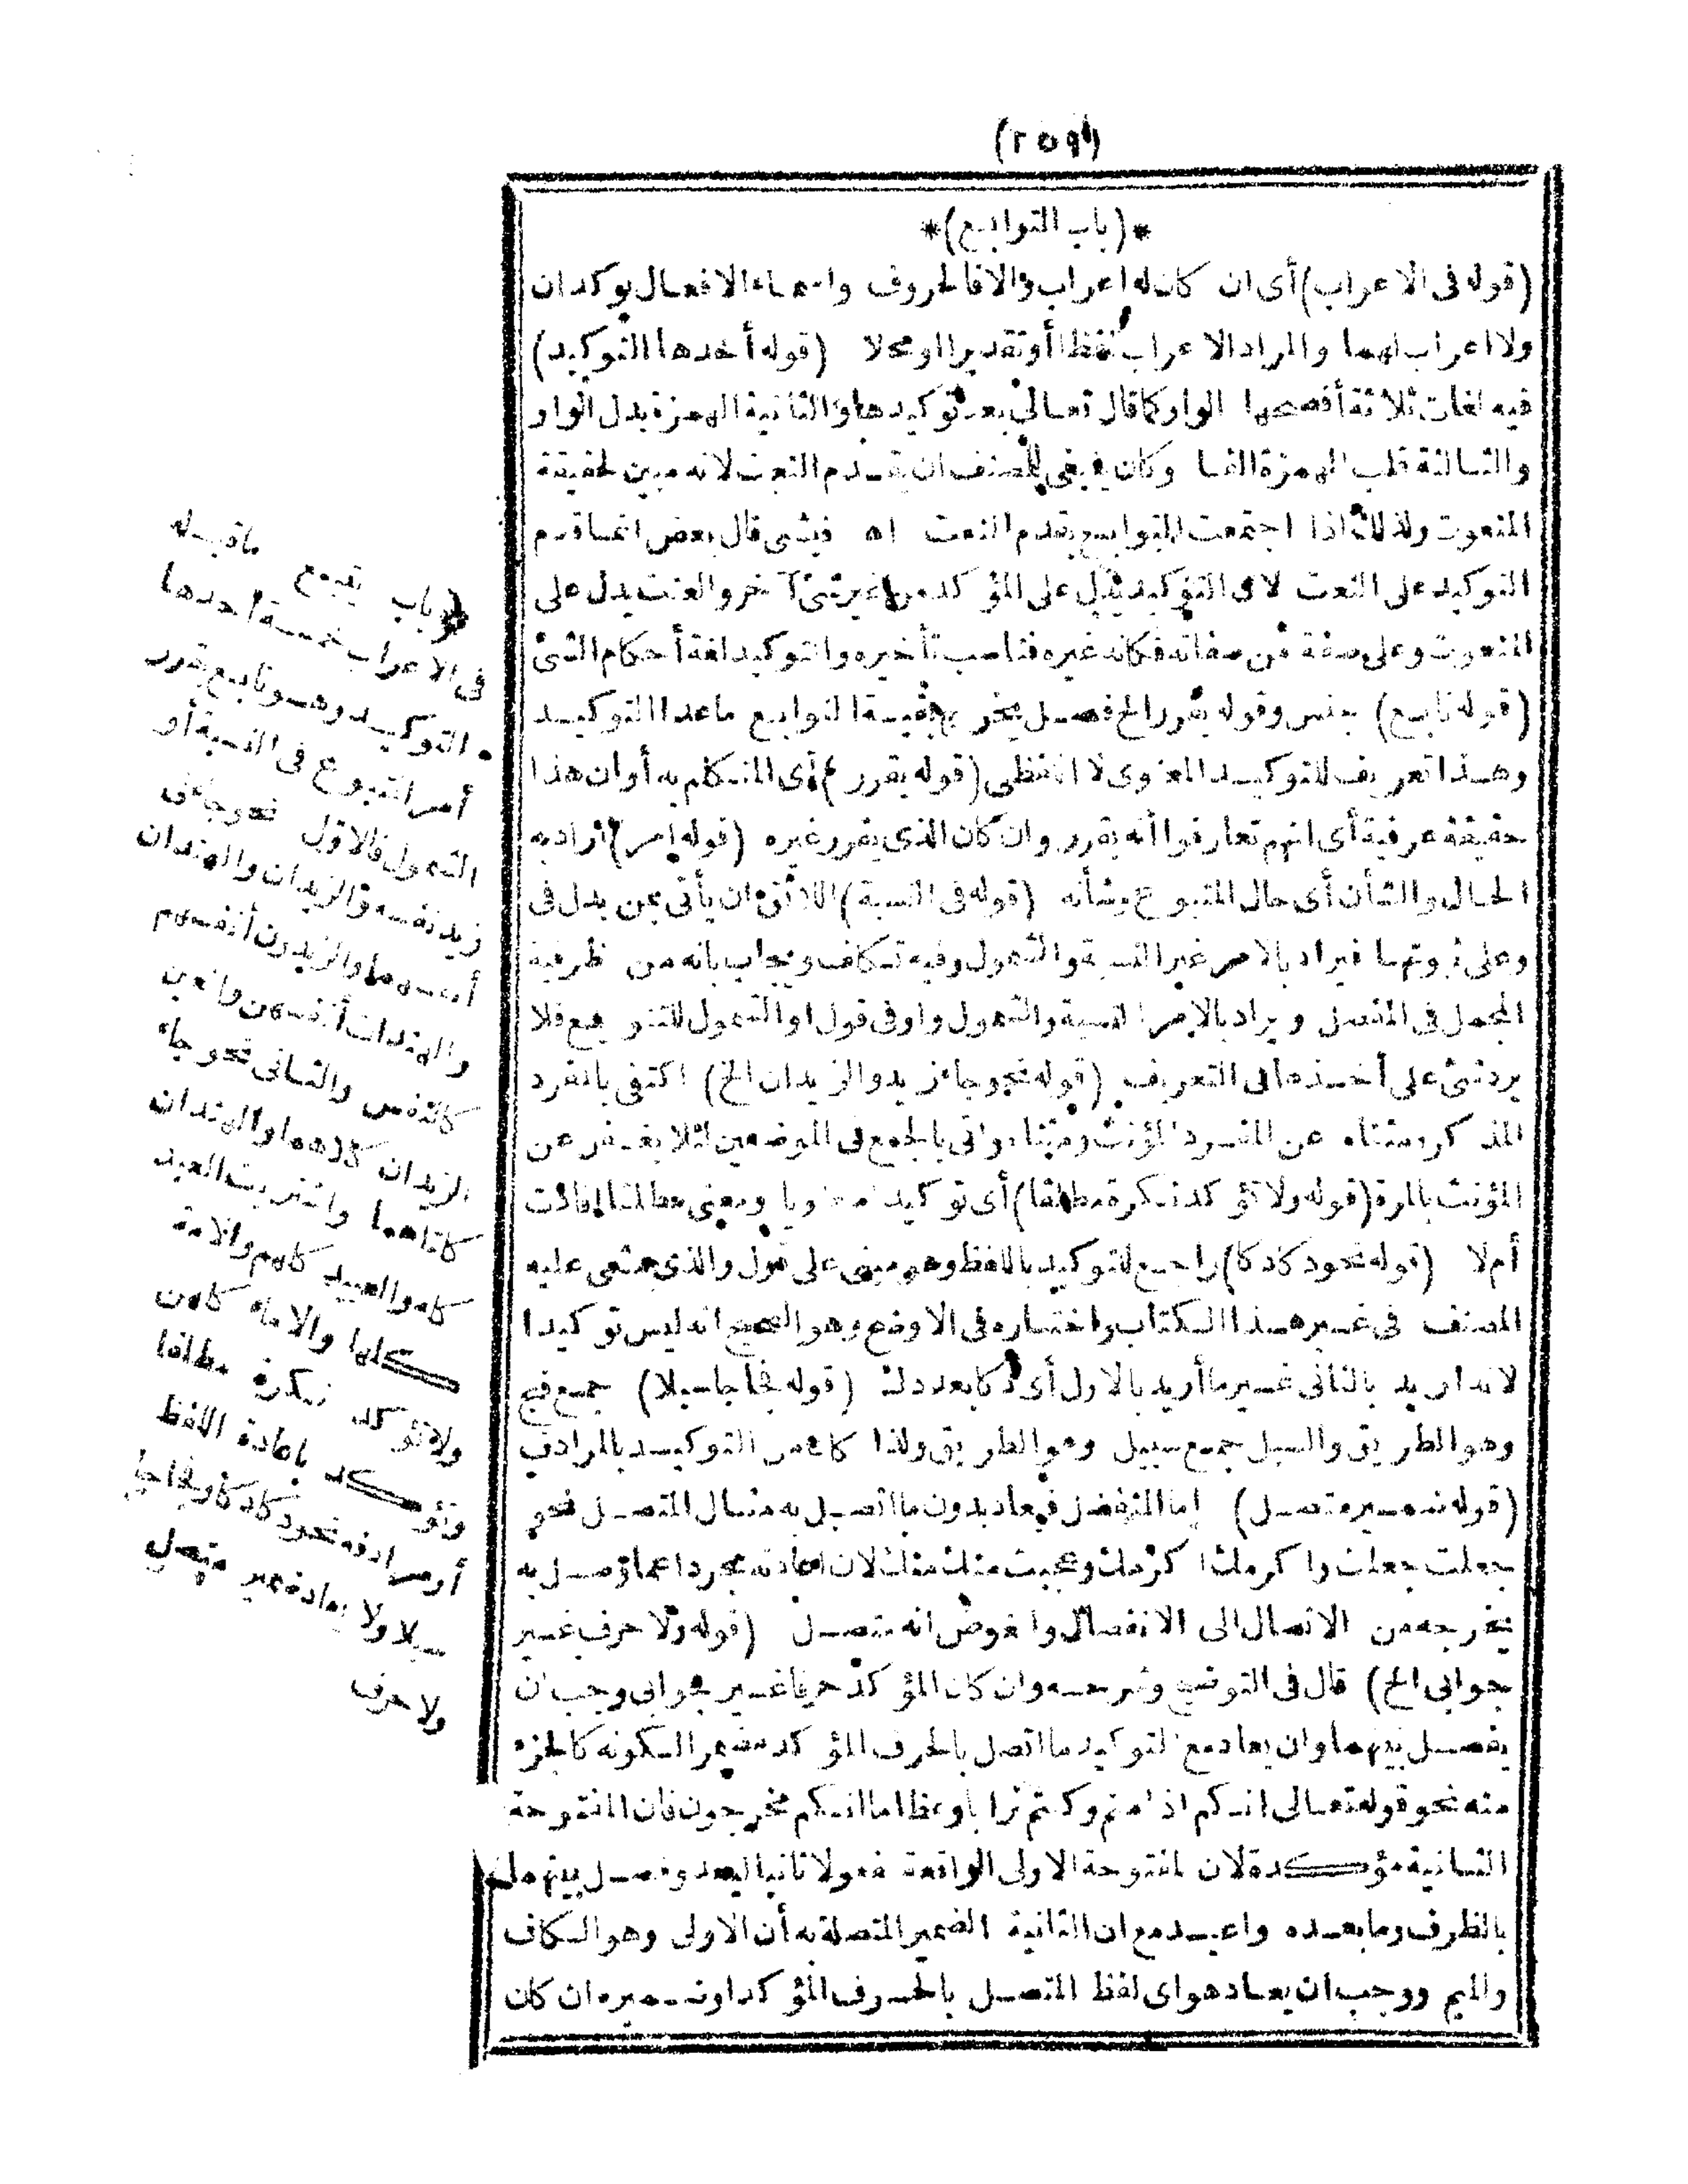 (٢٥٩)
*(باب التوابع)*
(قوله فى الاعراب) أى ان كان له اعراب والا فالحروف واسماء الافعال يوكدان
ولا اعراب لهما والمراد الاعراب لفظا أو تقديرا او محلا (قوله أحدها التوكيد)
فيه لغات ثلاثة أفصحها الواو كما قال تعالى بعد توكيدها والثانية الهمزة بدل الواو
والثالثة قلب الهمزة الفا وكان ينبغى للمصنف ان يقدم النعت لانه مبين لحقيقة
المنعوت ولذلك اذا اجتمعت التوابع يقدم النعت اه فيشى قال بعض انما قدم
التوكيد على النعت لان التوكيد يدل على المؤكد من غير شئ آخر والنعت يدل على
المنعوت وعلى صفة من صفاته فكانه غيره فناسب تأخيره والتوكيد لغة أحكام الشئ
(قوله تابع) جنس وقوله يقرر الخ فصل يخرج بقية التوابع ماعدا التوكيد
وهذا تعريف للتوكيد المعنوى لا اللفظى (قوله يقرر) أى المتكلم به أوان هذا
حقيقة عرفية أى انهم تعارفوا أنه يقرر وان كان الذى يقرر غيره (قوله امر) أراد به
الحال والشأن أى حال المتبوع وشأنه (قوله فى النسبة) اللائق ان يأتى بمن بدل فى
وعلى ثبوتها فيراد بالامر غير النسبة والشمول وفيه تكلف ويجاب بانه من ظرفية
المجمل فى المفصل ويراد بالامر النسبة والشمول واو فى قول او الشمول للتنويع فلا
يرد شئ على أخذها فى التعريف (قوله نحو جاء زيد والزيدان الخ) اكتفى بالمفرد
المذكر ومثناه عن المفرد المؤنث ومثناه واتى بالجمع فى الموضعين لئلا يغفر عن
المؤنث بالمرة (قوله ولا تؤكد نكرة مطلقا) أى توكيدا معنويا ومعنى مطلقا افادت
أم لا (قوله نحو دكا دكا) راجع للتوكيد باللفظ وهو مبنى على قول والذى مشى عليه
المصنف فى غير هذا الكتاب واختاره فى الاوضح وهو الصحيح انه ليس توكيدا
لانه اريد بالثانى غير ما أريد بالاول أى دكا بعد دك (قوله فجاجا سبلا) جمع فج
وهو الطريق والسبل جمع سبيل وهو الطريق ولذا كان من التوكيد بالمرادف
(قوله ضمير متصل) اما المنفصل فيعاد بدون ما اتصل به مثال المتصل نحو
جعلت جعلت واكرمك اكرمك وعجبت منك منك لان اعادته مجردا عما وصل به
يخرجه من الاتصال الى الانفصال والغرض انه متصل (قوله ولا حرف غير
جوابى الخ) قال فى التوضيح وشرحه وان كان المؤكد حرفا غير جوابى وجب ان
يفصل بينهما وان يعاد مع التوكيد ما اتصل بالحرف المؤكد مضمرا لكونه كالجزء
منه نحو قوله تعالى انكم اذا متم وكنتم ترابا وعظاما انكم مخرجون فان المفتوحة
الثانية مؤكدة لان المفتوحة الاولى الواقعة مفعولا ثانيا ليعد وفصل بينهما
بالظرف وما بعده واعيد مع ان الثانية الضمير المتصلة به أن الاولى وهو الكاف
والميم ووجب ان يعاد هو اى لفظ المتصل بالحرف المؤكد او ضميره ان كان
باب يتبع ماقبله
فى الاعراب خمسة احدها
التوكيد وهو تابع يقرر
أمر المتبوع فى النسبة أو
الشمول فالاول نحو جاءنى
زيد نفسه والزيدان والهندان
أنفسهما والزيدون أنفسهم
والهندات أنفسهن والعين
كالنفس والثانى نحو جاء
الزيدان كلاهما والهندان
كلتاهما واشتريت العبد
كله والعبيد كلهم والامة
كلها والاماء كلهن
ولا تؤكد نكرة مطلقا
وتؤكد باعادة اللفظ
أو مرادفه نحو دكا دكا وفجاجا
سبلا ولا يعاد ضمير متصل
ولا حرف